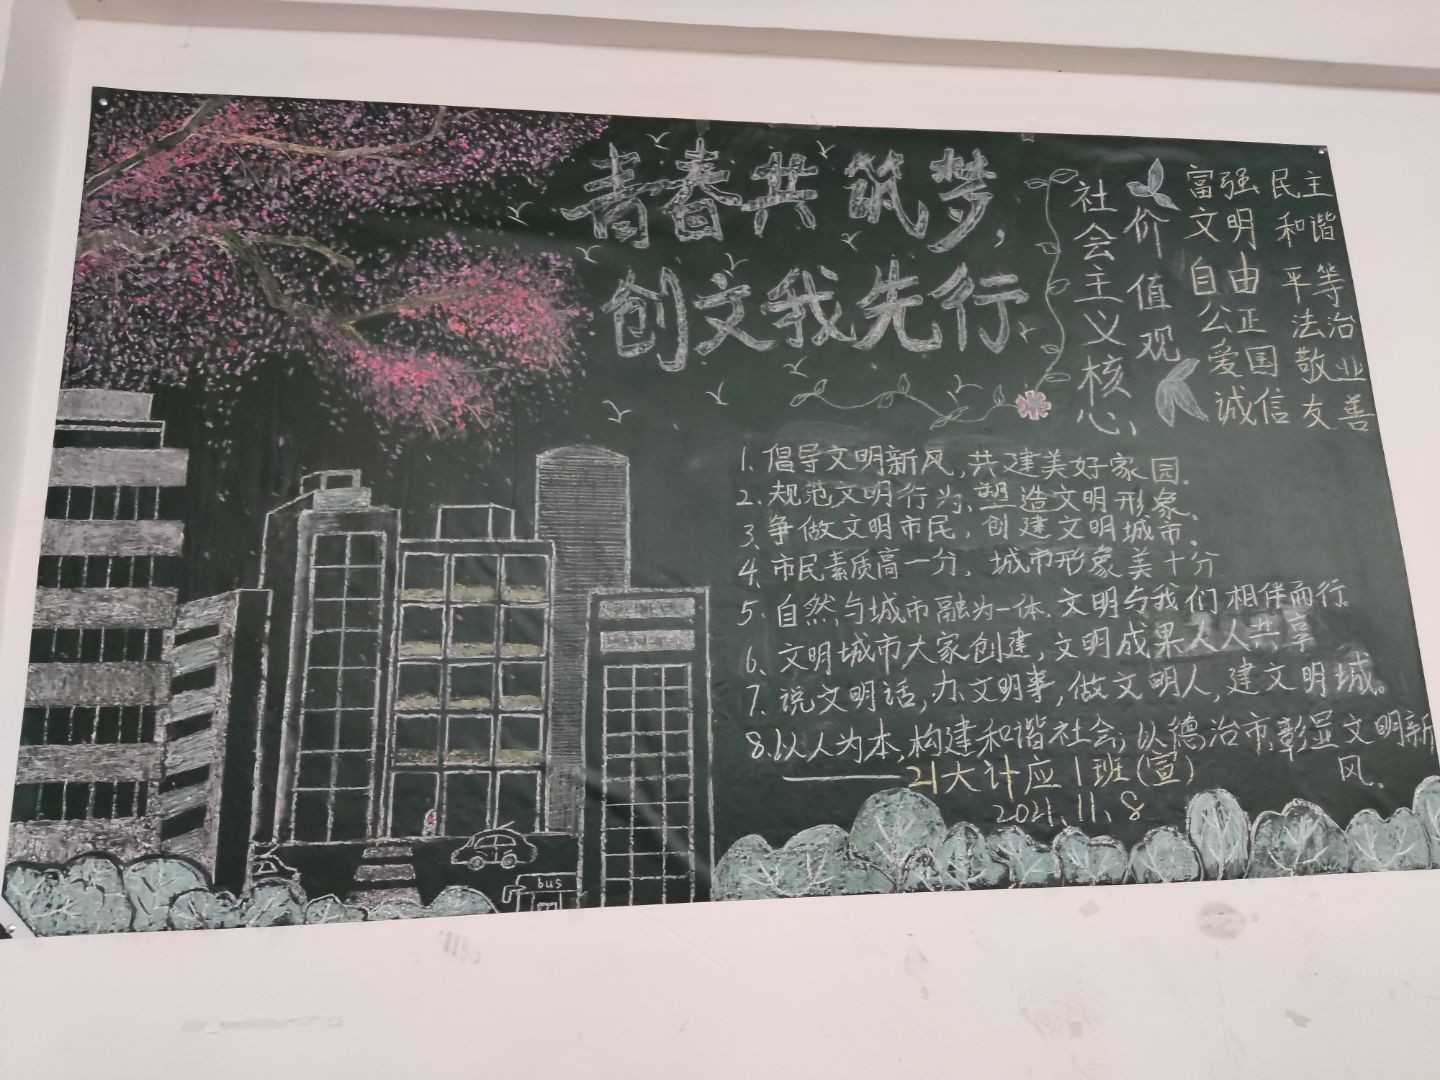 青春共筑梦,
创文我先行
社会主义核心,
价值观
富强 民主
文明 和谐
自由 平等
公正 法治
爱国 敬业
诚信 友善
1. 倡导文明新风,共建美好家园.
2. 规范文明行为、塑造文明形象.
3、争做文明市民,创建文明城市.
4、市民素质高一分,城市形象美十分
5. 自然与城市融为一体.文明与我们相伴而行.
6、文明城市大家创建,文明成果人人共享
7. 说文明话,办文明事,做文明人,建文明城。
8.以人为本,构建和谐社会;以德治市,彰显文明新
风.
——21大计应1班(宣)
2021.11.8
bus